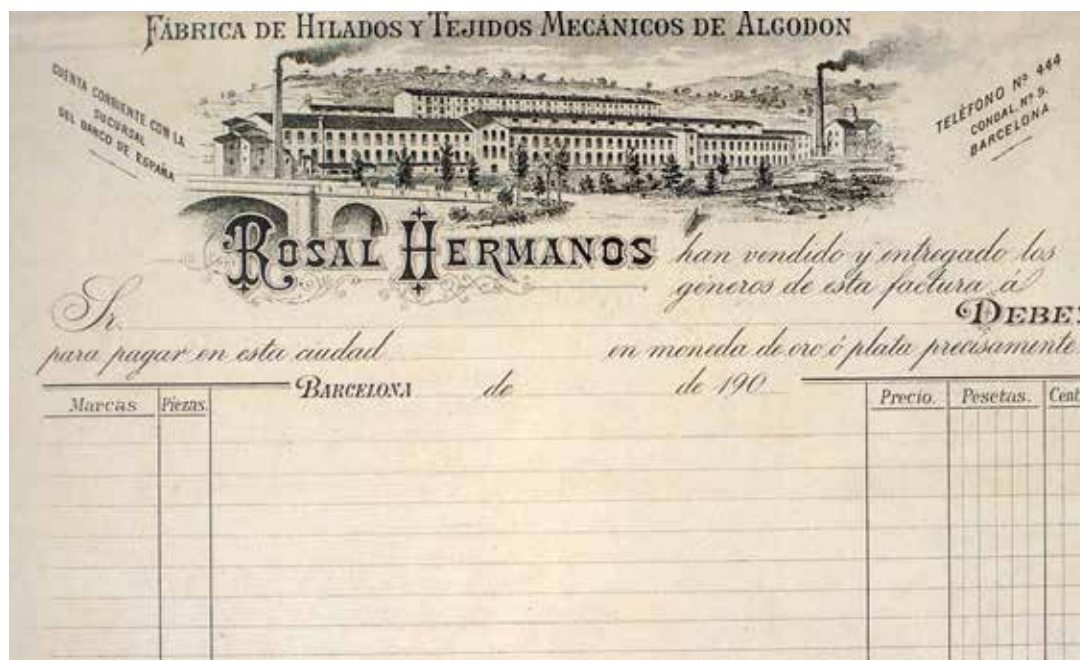 FÁBRICA DE HILADOS Y TEJIDOS MECÁNICOS DE ALGODON
CUENTA CORRIENTE CON LA
SUCURSAL
DEL BANCO DE ESPAÑA
TELÉFONO Nº 444
CONDAL, Nº 9.
BARCELONA
ROSAL HERMANOS han vendido y entregado los
géneros de esta factura á
Sr. DEBE
para pagar en esta ciudad en moneda de oro ó plata precisamente
BARCELONA de de 190
Marcas Piezas. Precio. Pesetas. Cent